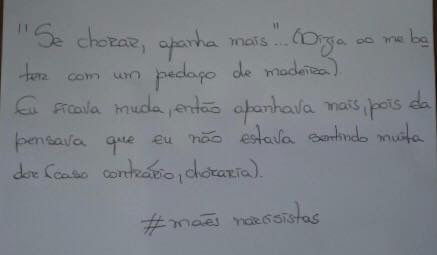 "Se chorar, apanha mais"... (Dizia ao me ba
ter com um pedaço de madeira)
Eu ficava muda, então apanhava mais, pois ela
pensava que eu não estava sentindo muita
dor (caso contrário, choraria).
#maẽs narcisistas